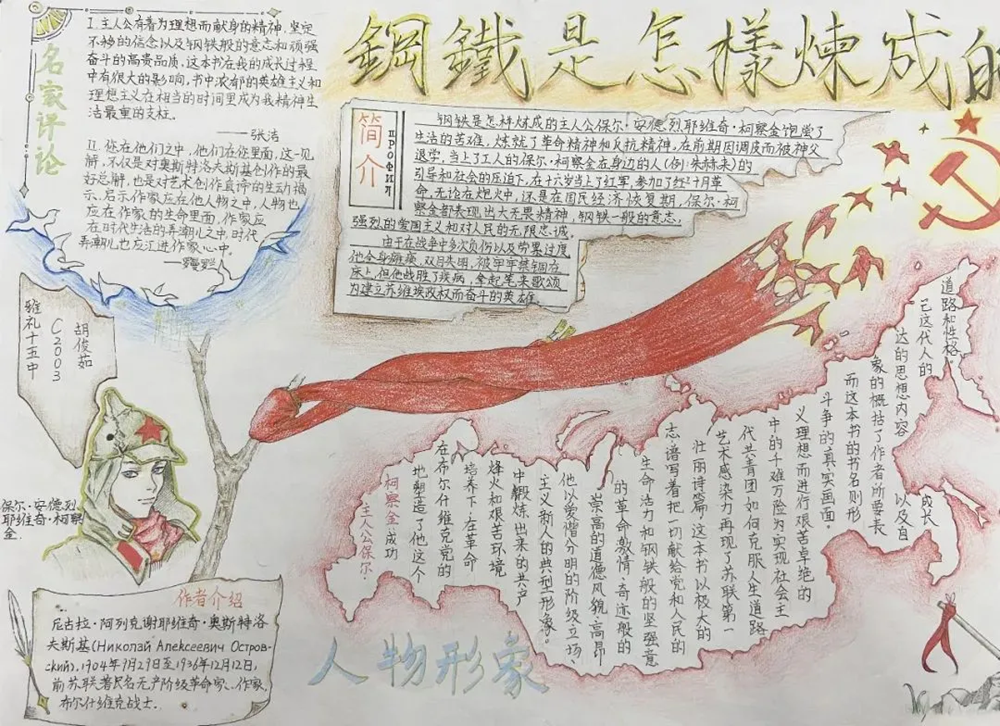 鋼鐵是怎樣煉成的
名家评论
I.主人公有着为理想而献身的精神,坚定
不移的信念以及钢铁般的意志和顽强
奋斗的高贵品质,这本书在我的成长过程
中有很大的影响,书中浓郁的英雄主义和
理想主义在相当的时间里成为我精神生
活最重的支柱。
——张洁
II.你在他们之中,他们在你里面,这一见
解,不仅是对奥斯特洛夫斯基创作的最
好总解,也是对艺术创作真谛的生动揭
示,启示作家应在他人物之中,人物也
应在作家的生命里面,作家应
在时代生活的弄潮儿之中,时代
弄潮儿也应汇进作家心中。
简介
ПРОФИЛ
钢铁是怎样炼成的主人公保尔·安德烈耶维奇·柯察金饱尝了
生活的苦难,炼就了革命精神和反抗精神,在前期因调皮而被神父
退学,当上了工人的保尔·柯察金在身边的人(例:朱赫来)的
引导和社会的压迫下,在十六岁当上了红军,参加了红色十月革
命,无论在炮火中,还是在国民经济恢复期,保尔·柯
察金都表现出大无畏精神,钢铁一般的意志,
强烈的爱国主义和对人民的无限忠诚。
由于在战争中多次负伤以及劳累过度,
他全身瘫痪,双目失明,被牢牢禁锢在
床上,但他战胜了疾病,拿起笔来歌颂
为建立苏维埃政权而奋斗的英雄
雅礼十五中
C2003
胡俊茹
保尔·安德烈
耶维奇·柯察
金
作者介绍
尼古拉·阿列克谢耶维奇·奥斯特洛
夫斯基(Николай Алексеевич Остров-
ский),1904年9月29日至1936年12月12日,
前苏联著名无产阶级革命家、作家,
布尔什维克战士.
人物形象
主人公保尔·
柯察金成功
地塑造了他这个
在布尔什维克党的
培养下,在革命
烽火和艰苦环境
中锻炼出来的共产
主义新人的典型形象。
他以爱憎分明的阶级立场、
崇高的道德风貌,高昂
的革命激情,奇迹般的
生命活力和钢铁般的坚强意
志谱写着把一切献给党和人民的
壮丽诗篇,这本书以极大的
艺术感染力再现了苏联第一
代共青团人如何克服人生道路
中的千难万险为实现社会主
义理想而进行艰苦卓绝的
斗争的真实画面。
而这本书的书名则形
象的概括了作者所要表
达的思想内容
以及自
己这代人的
成长
道路和性格。